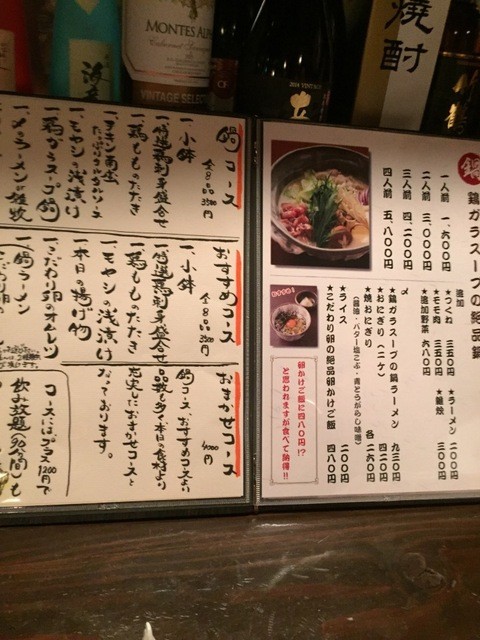 MONTES ALPHA
Cabernet Sauvignon
VINTAGE SELECT
焼酎
鍋コース
一、小鉢
一、特選鶏刺身盛合せ
一、鶏もものたたき
一、チキン南蛮
一、モヤシの浅漬け
一、鶏ガラスープ鍋
おすすめコース
一、小鉢
一、特選鶏刺身盛合せ
一、鶏もものたたき
一、モヤシの浅漬け
一、本日の揚げ物
一、こだわり卵のオムレツ
一、鍋ラーメン
おまかせコース
鍋コース、おすすめコースより
品数も多く本日の食材より
充実したおまかせコースと
なっております。
コースにはプラス1200円で
飲み放題(90分間)も
鍋
鶏ガラスープの絶品鍋
一人前 一、六〇〇円
二人前 三、〇〇〇円
三人前 四、二〇〇円
四人前 五、八〇〇円
追加
★つくね 三五〇円
★モモ肉 三五〇円
★追加野菜 六八〇円
★ラーメン 二〇〇円
★雑炊 三〇〇円
〆
★鶏ガラスープの鍋ラーメン 九三〇円
★おにぎり(二ケ) 四二〇円
★焼おにぎり 各二六〇円
(醤油・バター塩こぶ・青とうがらし味噌)
★ライス 二〇〇円
★こだわり卵の絶品卵かけご飯 四八〇円
卵かけご飯に四八〇円!?
と思われますが食べて納得!!